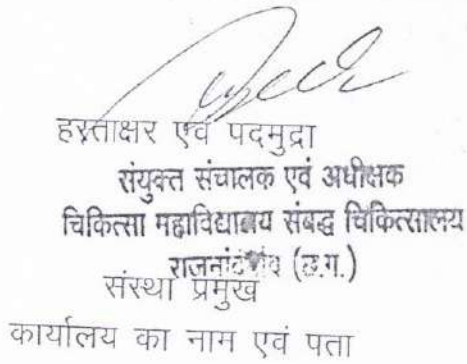 हस्ताक्षर एवं पदमुद्रा
संयुक्त संचालक एवं अधीक्षक
चिकित्सा महाविद्यालय संबद्ध चिकित्सालय
राजनांदगांव (छ.ग.)
संस्था प्रमुख
कार्यालय का नाम एवं पता